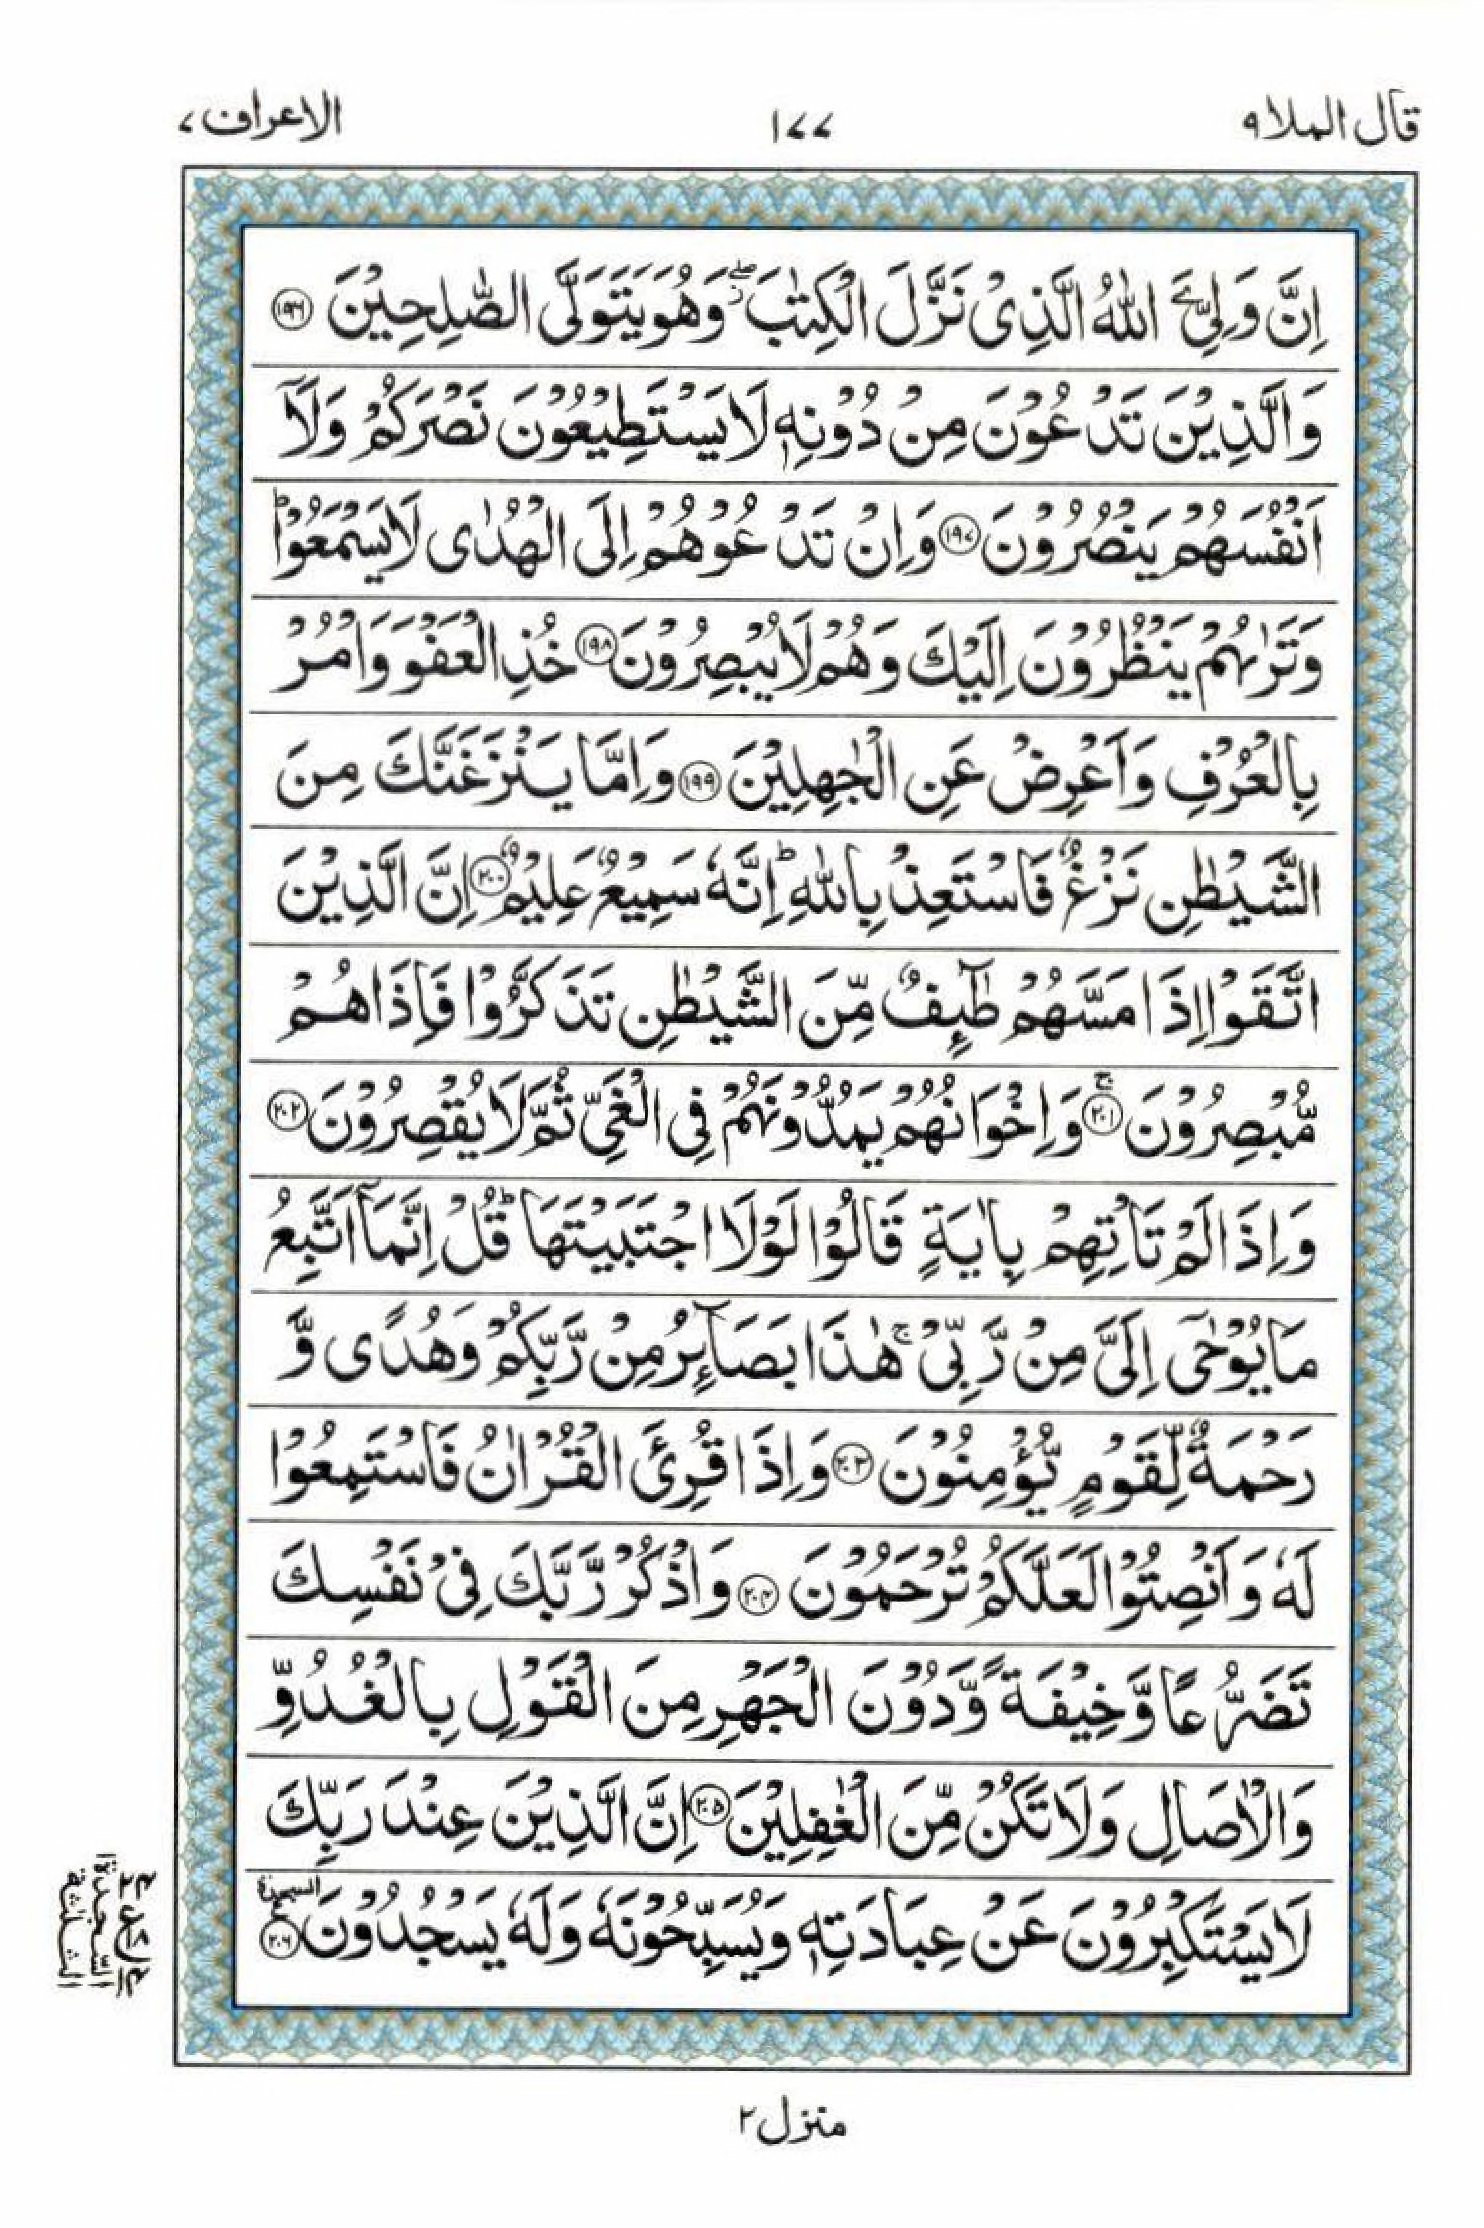 قال الملا ٩ ١٧٧ الاعراف ٧
اِنَّ وَلِیِّ ےَ اللّٰهُ الَّذِیْ نَزَّلَ الْكِتٰبَ ۖ٘ وَهُوَ یَتَوَلَّی الصّٰلِحِیْنَ ﴿۱۹۶﴾
وَالَّذِیْنَ تَدْعُوْنَ مِنْ دُوْنِهٖ لَا یَسْتَطِیْعُوْنَ نَصْرَكُمْ وَلَاۤ
اَنْفُسَهُمْ یَنْصُرُوْنَ ﴿۱۹۷﴾ وَاِنْ تَدْعُوْهُمْ اِلَی الْهُدٰی لَا یَسْمَعُوْا ؕ
وَتَرٰىهُمْ یَنْظُرُوْنَ اِلَیْكَ وَهُمْ لَا یُبْصِرُوْنَ ﴿۱۹۸﴾ خُذِ الْعَفْوَ وَاْمُرْ
بِالْعُرْفِ وَاَعْرِضْ عَنِ الْجٰهِلِیْنَ ﴿۱۹۹﴾ وَاِمَّا یَنْزَغَنَّكَ مِنَ
الشَّیْطٰنِ نَزْغٌ فَاسْتَعِذْ بِاللّٰهِ ؕ اِنَّهٗ سَمِیْعٌ عَلِیْمٌ ﴿۲۰۰﴾ اِنَّ الَّذِیْنَ
اتَّقَوْا اِذَا مَسَّهُمْ طٰٓىِٕفٌ مِّنَ الشَّیْطٰنِ تَذَكَّرُوْا فَاِذَا هُمْ
مُّبْصِرُوْنَ ﴿۲۰۱﴾ۚ وَاِخْوَانُهُمْ یَمُدُّوْنَهُمْ فِی الْغَیِّ ثُمَّ لَا یُقْصِرُوْنَ ﴿۲۰۲﴾
وَاِذَا لَمْ تَاْتِهِمْ بِاٰیَةٍ قَالُوْا لَوْلَا اجْتَبَیْتَهَا ؕ قُلْ اِنَّمَاۤ اَتَّبِعُ
مَا یُوْحٰۤی اِلَیَّ مِنْ رَّبِّیْ ۚ هٰذَا بَصَآىِٕرُ مِنْ رَّبِّكُمْ وَهُدًی وَّ
رَحْمَةٌ لِّقَوْمٍ یُّؤْمِنُوْنَ ﴿۲۰۳﴾ وَاِذَا قُرِئَ الْقُرْاٰنُ فَاسْتَمِعُوْا
لَهٗ وَاَنْصِتُوْا لَعَلَّكُمْ تُرْحَمُوْنَ ﴿۲۰۴﴾ وَاذْكُرْ رَّبَّكَ فِیْ نَفْسِكَ
تَضَرُّعًا وَّخِیْفَةً وَّدُوْنَ الْجَهْرِ مِنَ الْقَوْلِ بِالْغُدُوِّ
وَالْاٰصَالِ وَلَا تَكُنْ مِّنَ الْغٰفِلِیْنَ ﴿۲۰۵﴾ اِنَّ الَّذِیْنَ عِنْدَ رَبِّكَ
لَا یَسْتَكْبِرُوْنَ عَنْ عِبَادَتِهٖ وَیُسَبِّحُوْنَهٗ وَلَهٗ یَسْجُدُوْنَ ﴿۲۰۶﴾ السجدة
منزل ٢